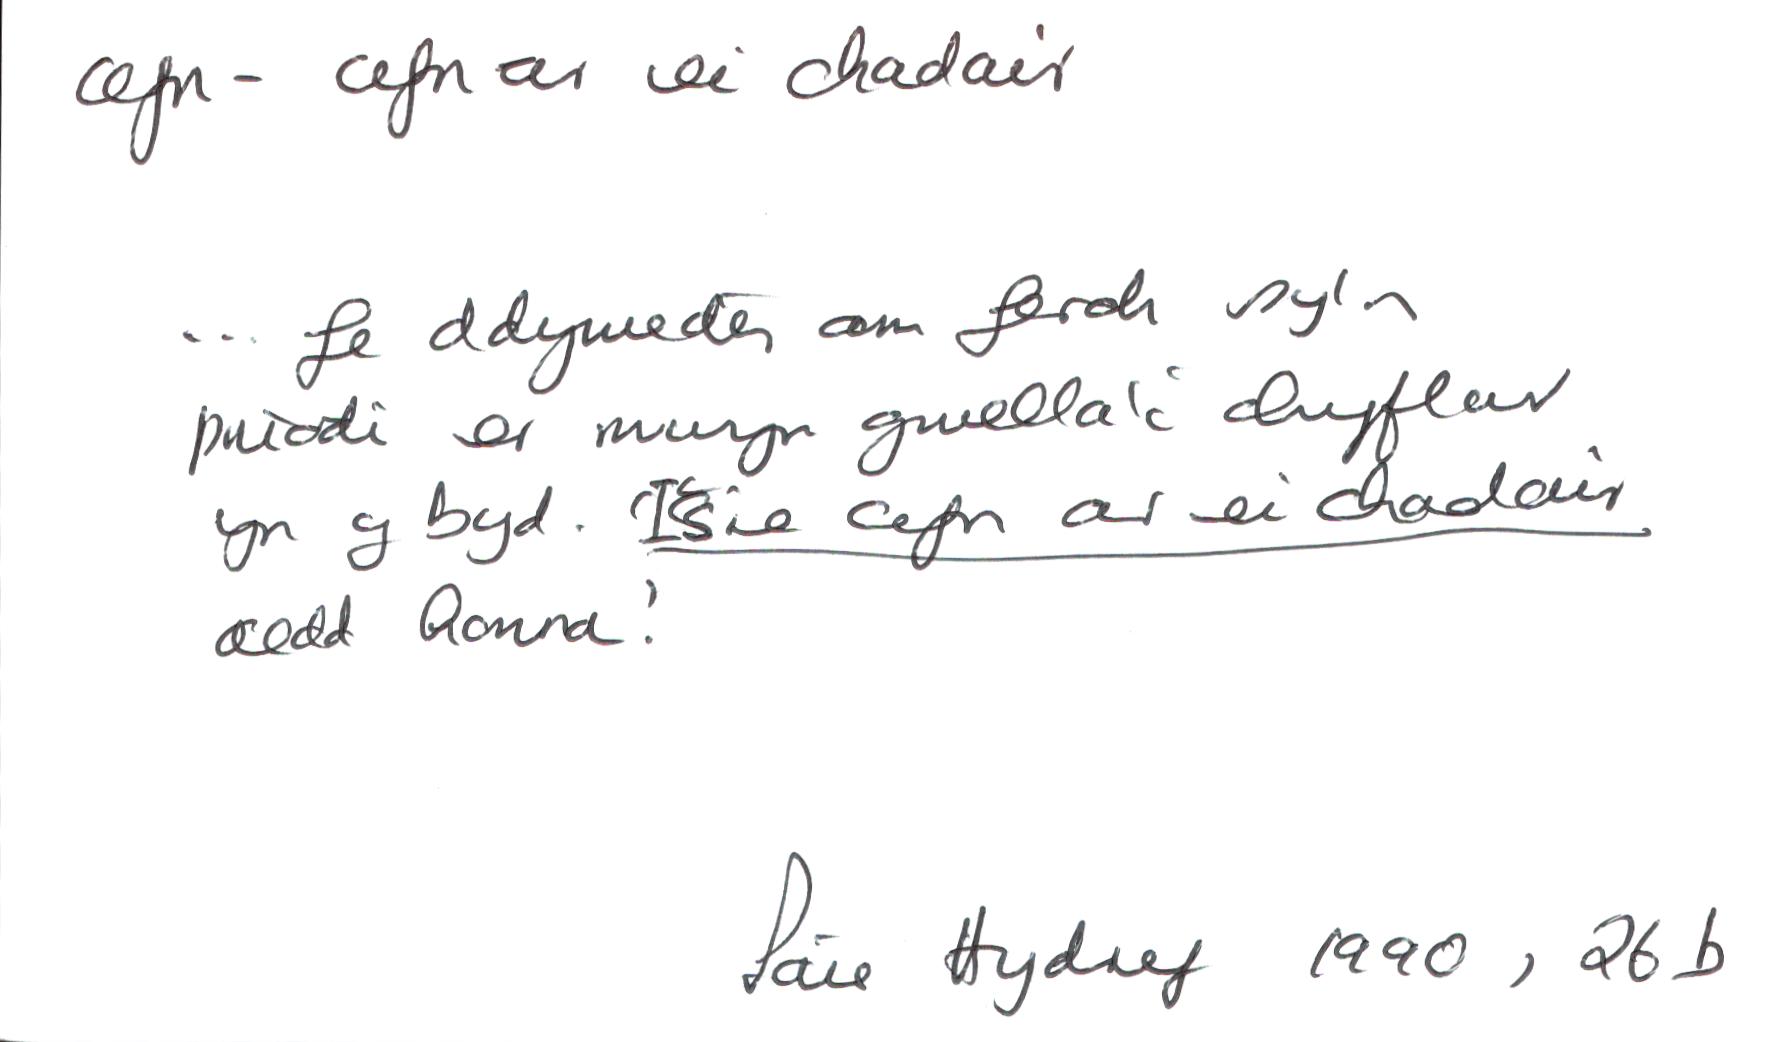 cefn - cefn ar ei chadair
... fe ddywedir am ferch sy'n
priodi er mwyn gwella'i chyflwr
yn y byd. Isie cefn ar ei chadair
oedd honna!
Hydref 1990, 26b